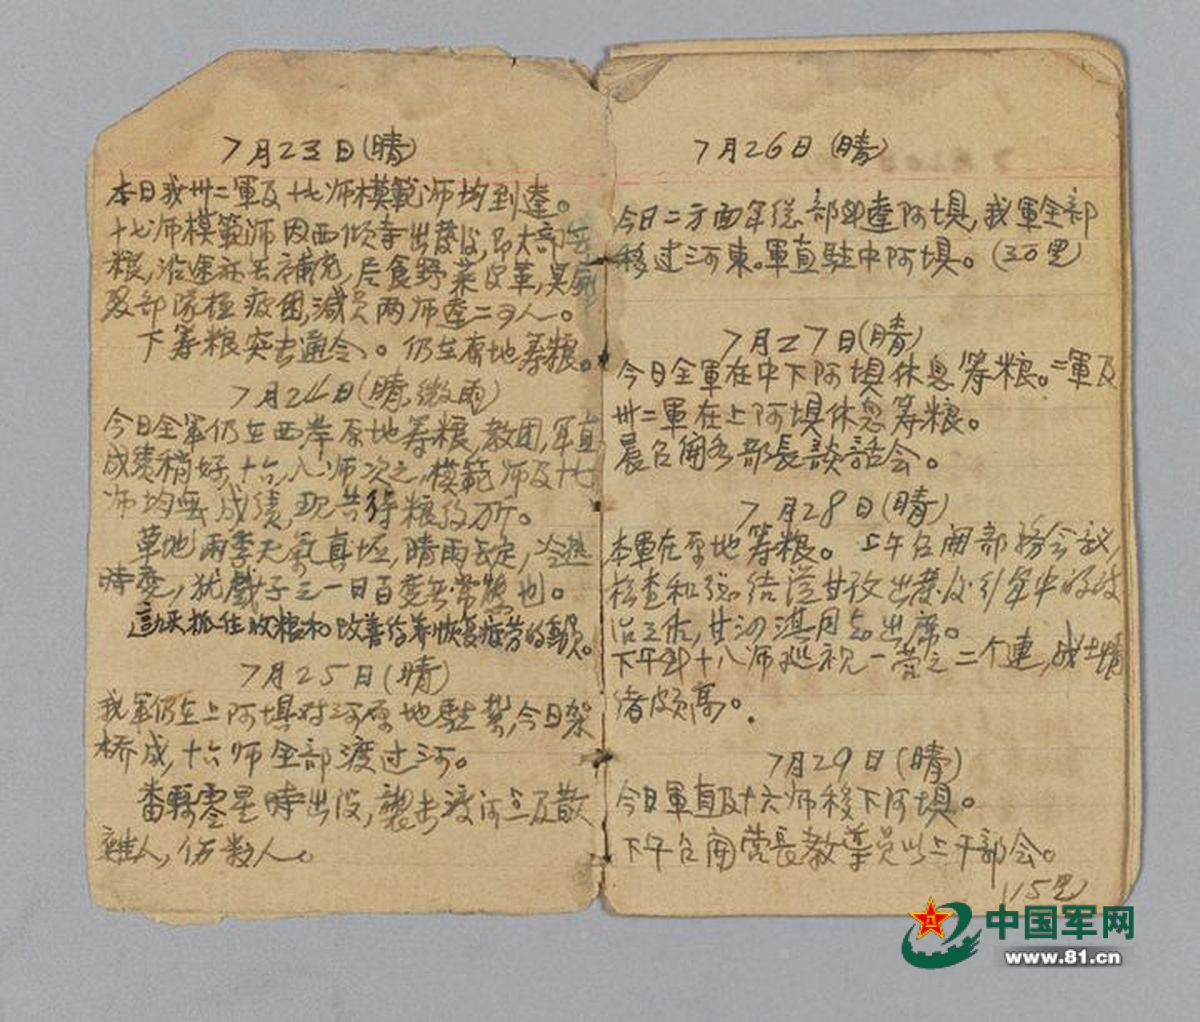 7月23日(晴)
本日我卅二軍及十七师模範师均到達。
十七师模範师因西倾寺出發后,即大部無
粮,沿途亦無補充,尽食野菜皮革,
部隊極疲困,減員两师達二百人。
下筹粮突击通令。仍在原地筹粮。
7月24日(晴,微雨)
今日全軍仍在西岸原地筹粮,教团,軍直
成绩稍好,十六、八师次之,模範师及十七
师均無成绩,現共得粮约万斤。
草地雨季天氣真坏,晴雨無定,冷热
時变,犹戲子之一日百变無常態也。
抓住收粮和改善给养恢復疲劳的動員。
7月25日(晴)
我軍仍在上阿埧对河原地駐紮,今日架
桥成,十六师全部渡过河。
番騎零星時出没,襲击渡河点及散
雜人,伤数人。
7月26日(晴)
今日二方面军总部到達阿埧,我軍全部
移过河東。軍直駐中阿埧。(30里)
7月27日(晴)
今日全軍在中下阿埧休息筹粮。二軍及
卅二軍在上阿埧休息筹粮。
晨召開各部長談話会。
7月28日(晴)
本軍在原地筹粮。上午召開部務会议,
检查和总结從甘孜出發后行军中的政
治工作,甘泗淇同志出席。
下午到十八师巡視一营之二个連,战士情
绪颇高。
7月29日(晴)
今日軍直及十六师移下阿埧。
下午召開营長教導員以上干部会。
(15里)
中国军网
www.81.cn